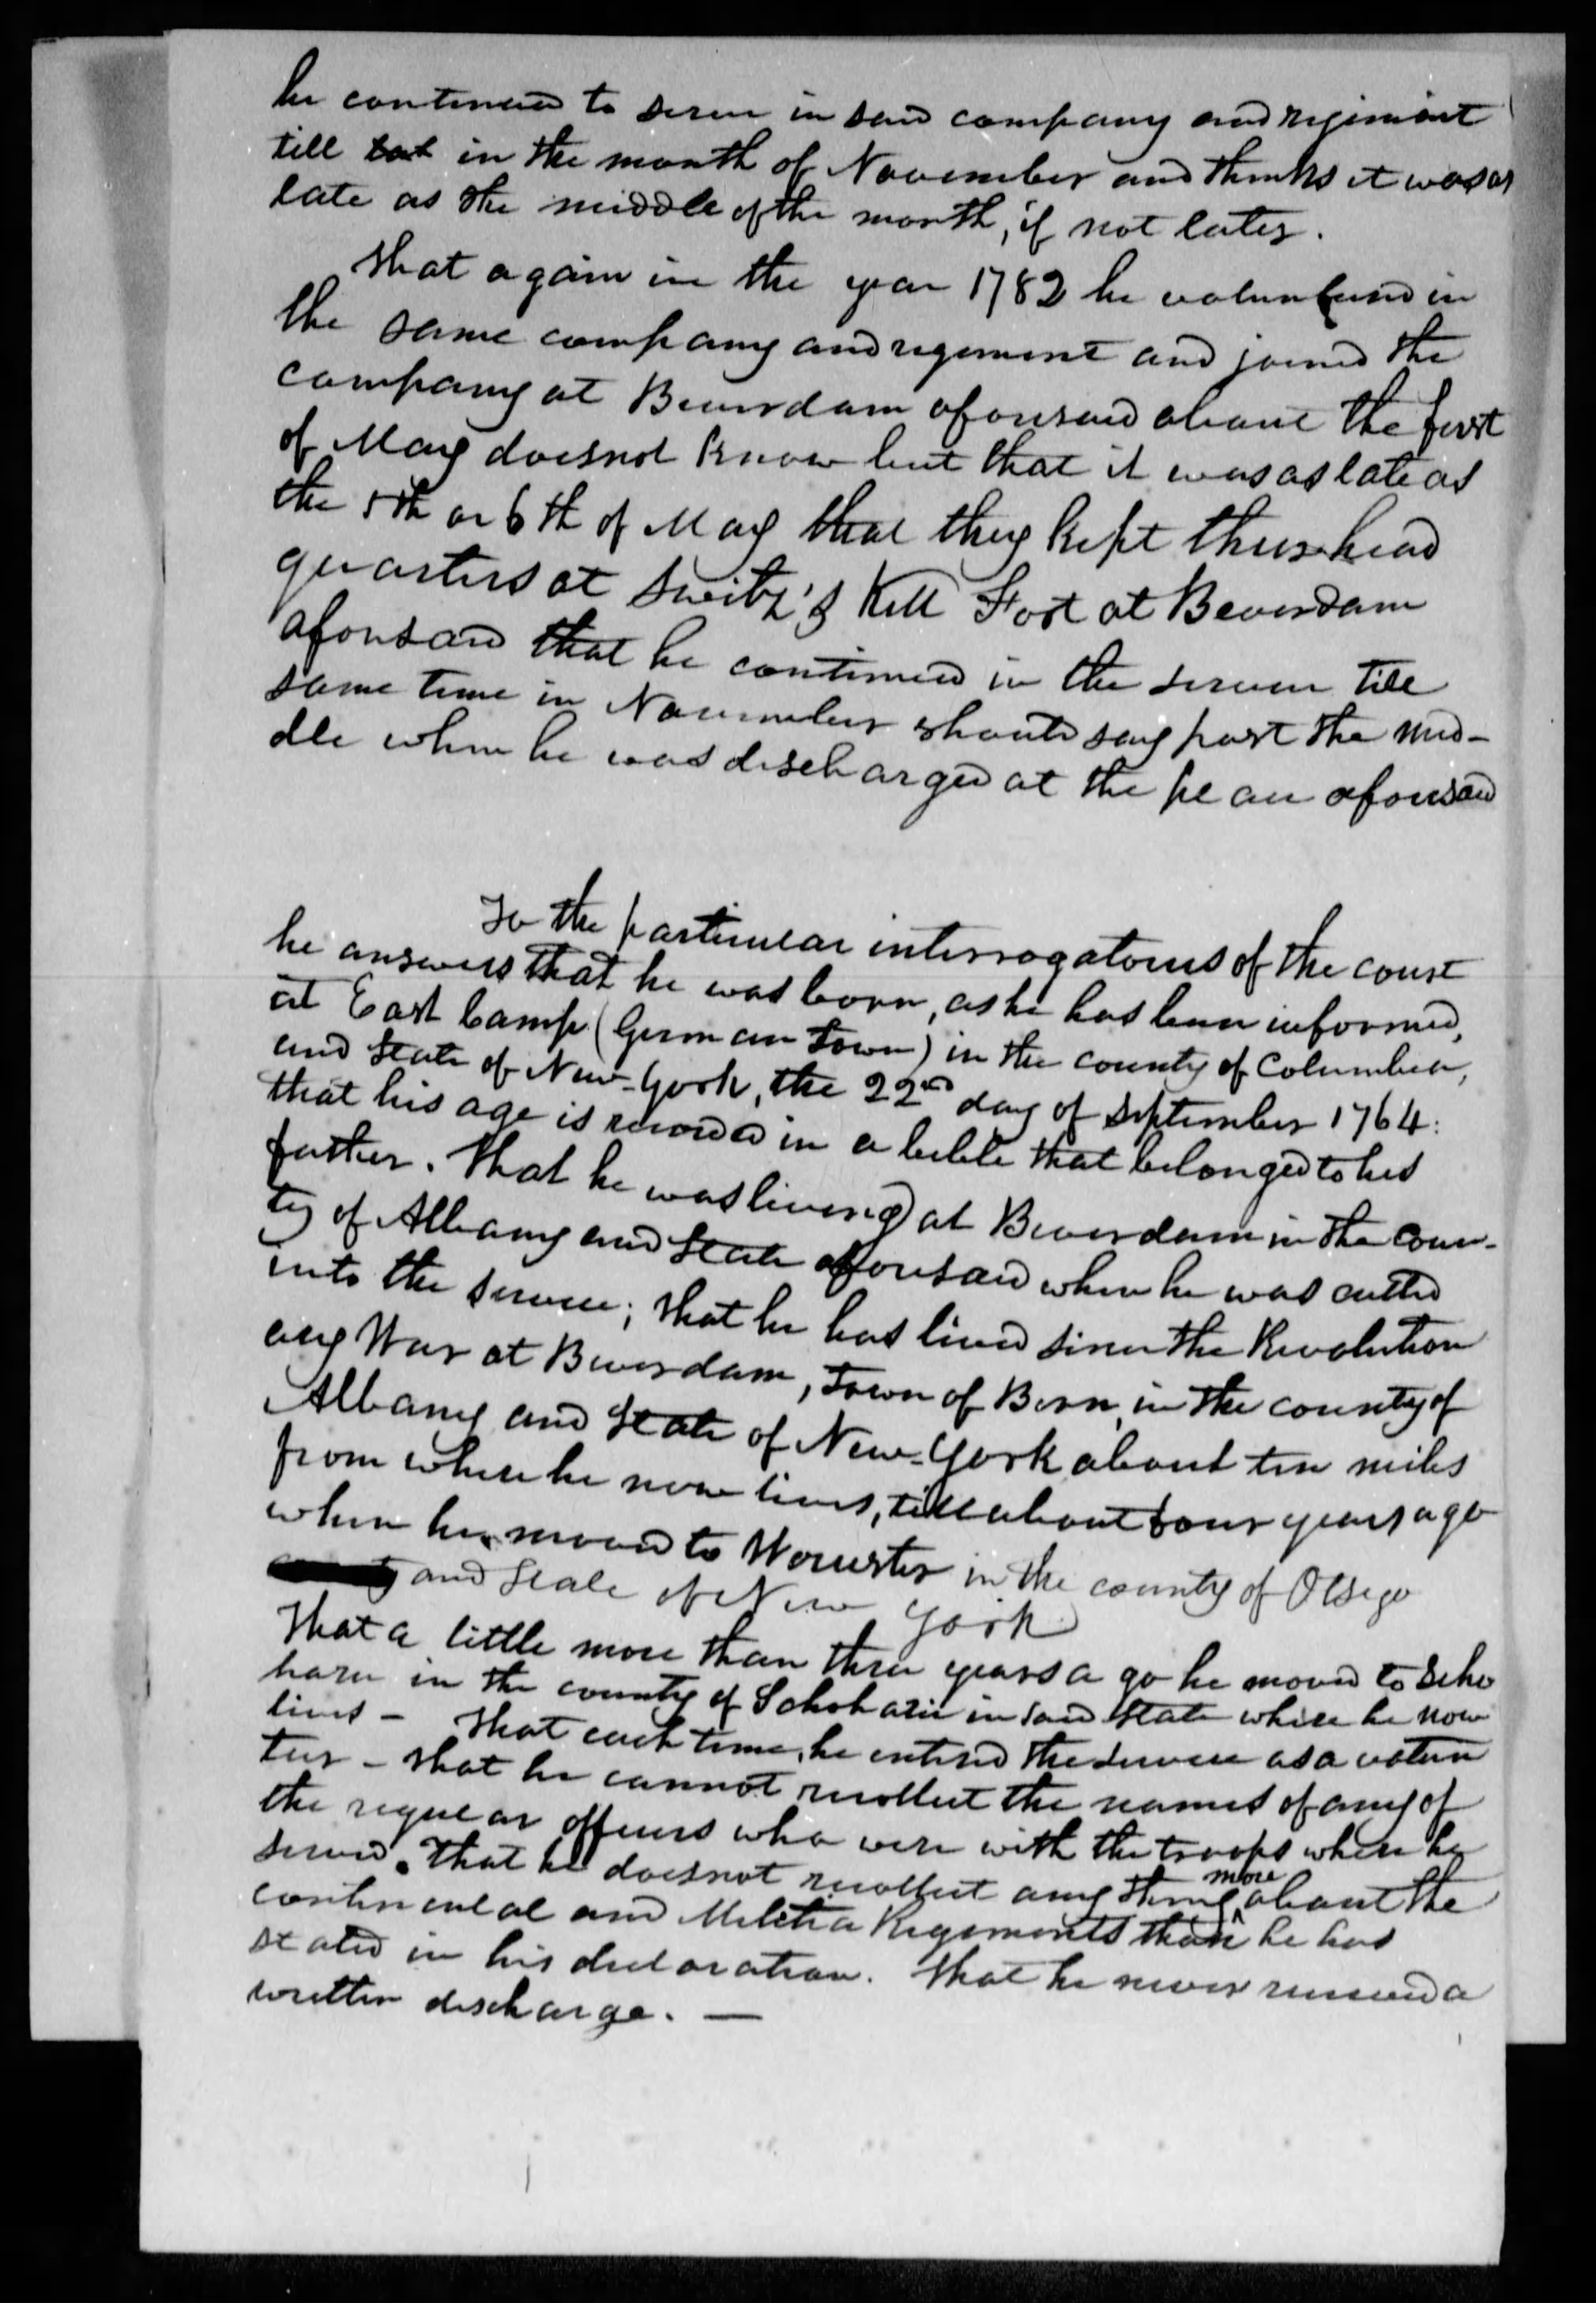 he continued to serve in said company and regiment
till late in the month of November and thinks it was as
late as the middle of the month, if not later.
That again in the year 1782 he volunteered in
the same company and regiment and joined the
company at Beaverdam aforesaid about the first
of May does not know but that it was as late as
the 5th or 6th of May that they kept their head
quarters at Switz's Kill Fort at Beaverdam
aforesaid that he continued in the service till
some time in November should say past the mid-
dle when he was discharged at the place aforesaid
To the particular interrogatories of the court
he answers that he was born, as he has been informed,
at East Camp (German Town) in the county of Columbia,
and State of New-York, the 22nd day of September 1764:
that his age is recorded in a bible that belonged to his
father. That he was living at Beaverdam in the coun-
ty of Albany and State aforesaid when he was called
into the service; that he has lived since the Revolution
ary War at Beaverdam, Town of Bern, in the county of
Albany and State of New-York about ten miles
from where he now lives, till about four years ago
when he moved to Worcester in the county of Otsego
and State of New York
That a little more than three years a go he moved to Scho
harie in the county of Schoharie in said State where he now
lives - That each time, he entered the service as a volun
teer - that he cannot recollect the names of any of
the regular officers who were with the troops where he
served. That he does not recollect any thing more about the
continental and Militia Regiments than he has
stated in his declaration. That he never received a
written discharge. —